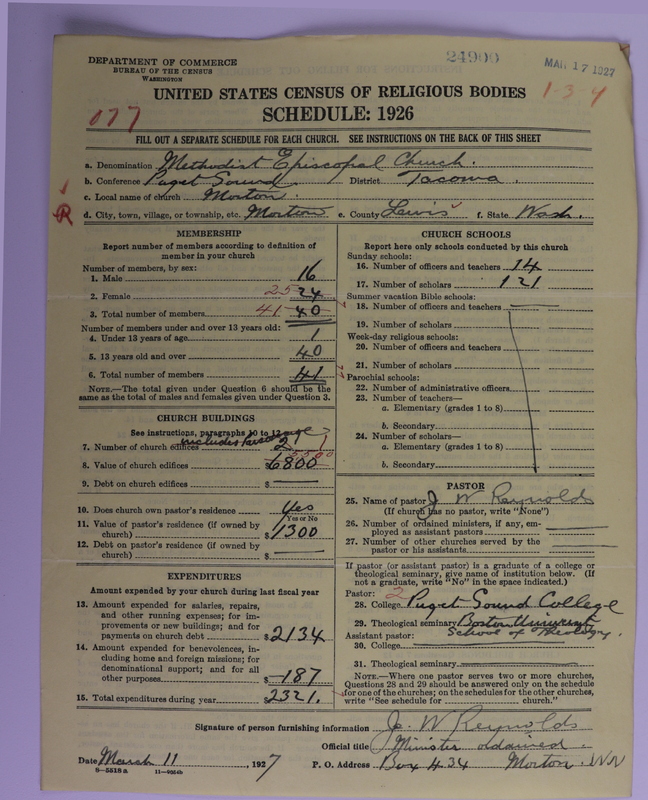 24900
MAR 17 1927
DEPARTMENT OF COMMERCE
BUREAU OF THE CENSUS
WASHINGTON
UNITED STATES CENSUS OF RELIGIOUS BODIES
1-3-4
SCHEDULE: 1926
077
FILL OUT A SEPARATE SCHEDULE FOR EACH CHURCH. SEE INSTRUCTIONS ON THE BACK OF THIS SHEET
a. Denomination Methodist Episcopal Church.
b. Conference Puget Sound District Tacoma.
c. Local name of church Morton.
R d. City, town, village, or township, etc. Morton e. County Lewis f. State Wash.
MEMBERSHIP
Report number of members according to definition of
member in your church
Number of members, by sex:
1. Male 16
2. Female 25 24
3. Total number of members 41 40
Number of members under and over 13 years old:
4. Under 13 years of age 1
5. 13 years old and over 40
6. Total number of members 41
NOTE.—The total given under Question 6 should be the
same as the total of males and females given under Question 3.
CHURCH BUILDINGS
See instructions, paragraphs 10 to 12
includes Parsonage
7. Number of church edifices 2 1
8. Value of church edifices $6800
9. Debt on church edifices $
10. Does church own pastor's residence Yes
Yes or No
11. Value of pastor's residence (if owned by
church) $1300
12. Debt on pastor's residence (if owned by
church) $
EXPENDITURES
Amount expended by your church during last fiscal year
13. Amount expended for salaries, repairs,
and other running expenses; for im-
provements or new buildings; and for
payments on church debt $2134
14. Amount expended for benevolences, in-
cluding home and foreign missions; for
denominational support; and for all
other purposes $187
15. Total expenditures during year $2321.
CHURCH SCHOOLS
Report here only schools conducted by this church
Sunday schools:
16. Number of officers and teachers 14
17. Number of scholars 121
Summer vacation Bible schools:
18. Number of officers and teachers
19. Number of scholars
Week-day religious schools:
20. Number of officers and teachers
21. Number of scholars
Parochial schools:
22. Number of administrative officers
23. Number of teachers—
a. Elementary (grades 1 to 8)
b. Secondary
24. Number of scholars—
a. Elementary (grades 1 to 8)
b. Secondary
PASTOR
25. Name of pastor J W Reynolds
(If church has no pastor, write "None")
26. Number of ordained ministers, if any, em-
ployed as assistant pastors
27. Number of other churches served by the
pastor or his assistants
If pastor (or assistant pastor) is a graduate of a college or
theological seminary, give name of institution below. (If
not a graduate, write "No" in the space indicated.)
Pastor: 2
28. College Puget Sound College
29. Theological seminary Boston University
School of Theology.
Assistant pastor:
30. College
31. Theological seminary
NOTE.—Where one pastor serves two or more churches,
Questions 28 and 29 should be answered only on the schedule
for one of the churches; on the schedules for the other churches,
write "See schedule for church."
Signature of person furnishing information J. W Reynolds
Official title Minister ordained.
Date March 11, 1927 P. O. Address Box 434 Morton, WN
8—5518a 11—9054b